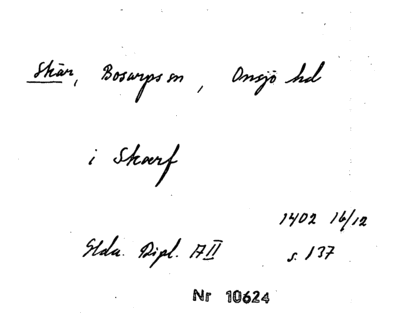 Skär, Bosarps sn, Onsjö hd
i Skærf
1402 16/12
Glda. Dipl. A II s. 137
Nr 10624